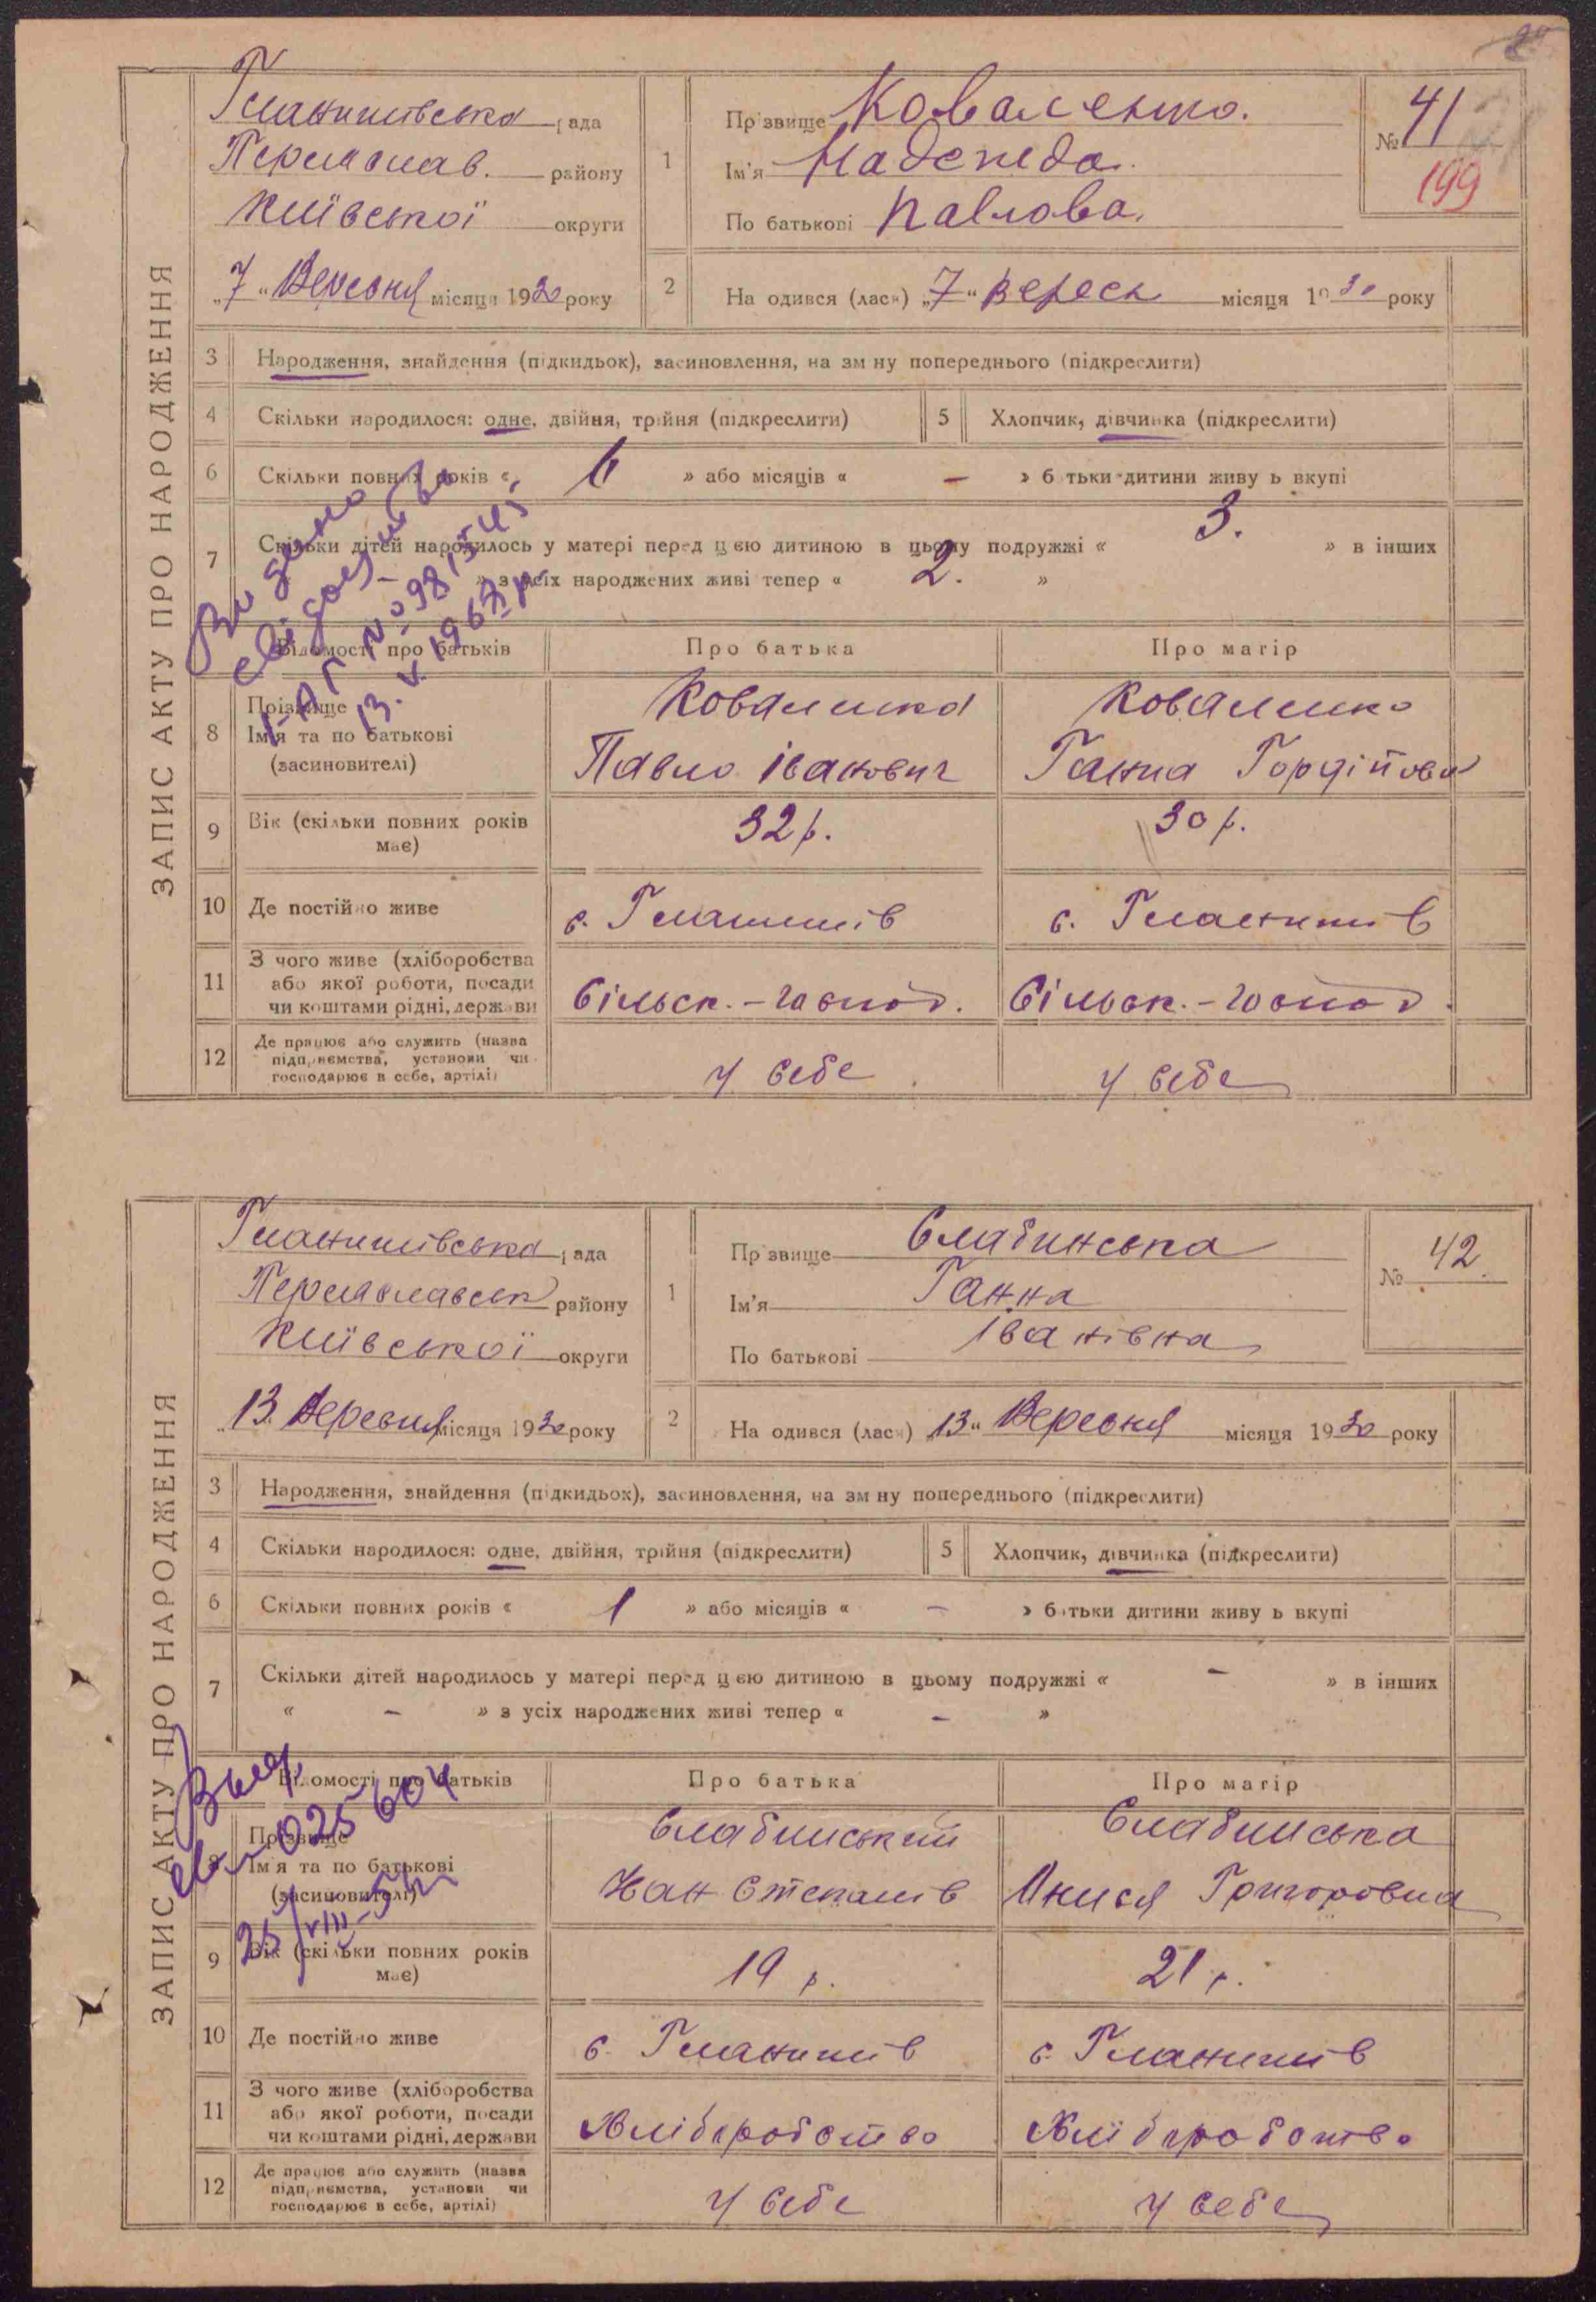 ЗАПИС АКТУ ПРО НАРОДЖЕННЯ
Гланишівська рада
Переяслав. району
Київської округи
„7“ Вересня місяця 1930 року
1
Прізвище Коваленко.
Ім'я Надежда.
По батькові Павлова.
№ 41
199
2
Народився (лася) „7“ вересн місяця 1930 року
3 Народження, знайдення (підкидьок), засиновлення, на зміну попереднього (підкреслити)
4 Скільки народилося: одне, двійня, трійня (підкреслити)
5 Хлопчик, дівчинка (підкреслити)
6 Скільки повних років « » або місяців « — » батьки дитини живуть вкупі
7 Скільки дітей народилось у матері перед цією дитиною в цьому подружжі « 3. » в інших
« — » з усіх народжених живі тепер « 2. »
Видано
свідоцтво
I-АГ № 981545
13.V.1967р.
Відомості про батьків
Про батька
Про матір
8 Прізвище
Ім'я та по батькові
(засиновителі)
Коваленко
Павло Іванович
Коваленко
Ганна Гордіївна
9 Вік (скільки повних років має)
32 р.
30 р.
10 Де постійно живе
с. Гланишів
с. Гланишів
11 З чого живе (хліборобства
або якої роботи, посади
чи коштами рідні, держави
Сільск.-господ.
Сільск.-господ.
12 Де працює або служить (назва
підприємства, установи чи
господарює в себе, артілі)
У себе
У себе
ЗАПИС АКТУ ПРО НАРОДЖЕННЯ
Гланишівська рада
Переяславськ району
Київської округи
„13. Вересня місяця 1930 року
1
Прізвище Слабинська
Ім'я Ганна
По батькові Іванівна
№ 42.
2
Народився (лася) „13“ Вересня місяця 1930 року
3 Народження, знайдення (підкидьок), засиновлення, на зміну попереднього (підкреслити)
4 Скільки народилося: одне, двійня, трійня (підкреслити)
5 Хлопчик, дівчинка (підкреслити)
6 Скільки повних років « 1 » або місяців « — » батьки дитини живуть вкупі
7 Скільки дітей народилось у матері перед цією дитиною в цьому подружжі « — » в інших
« — » з усіх народжених живі тепер « — »
Выд.
св. 025604
25/VIII-54г
Відомості про батьків
Про батька
Про матір
8 Прізвище
Ім'я та по батькові
(засиновителі)
Слабинський
Іван Степанів
Слабинська
Онися Григоровна
9 Вік (скільки повних років має)
19 р.
21 р.
10 Де постійно живе
с. Гланишів
с. Гланишів
11 З чого живе (хліборобства
або якої роботи, посади
чи коштами рідні, держави
Хліборобство
Хліборобство
12 Де працює або служить (назва
підприємства, установи чи
господарює в себе, артілі)
У себе
У себе